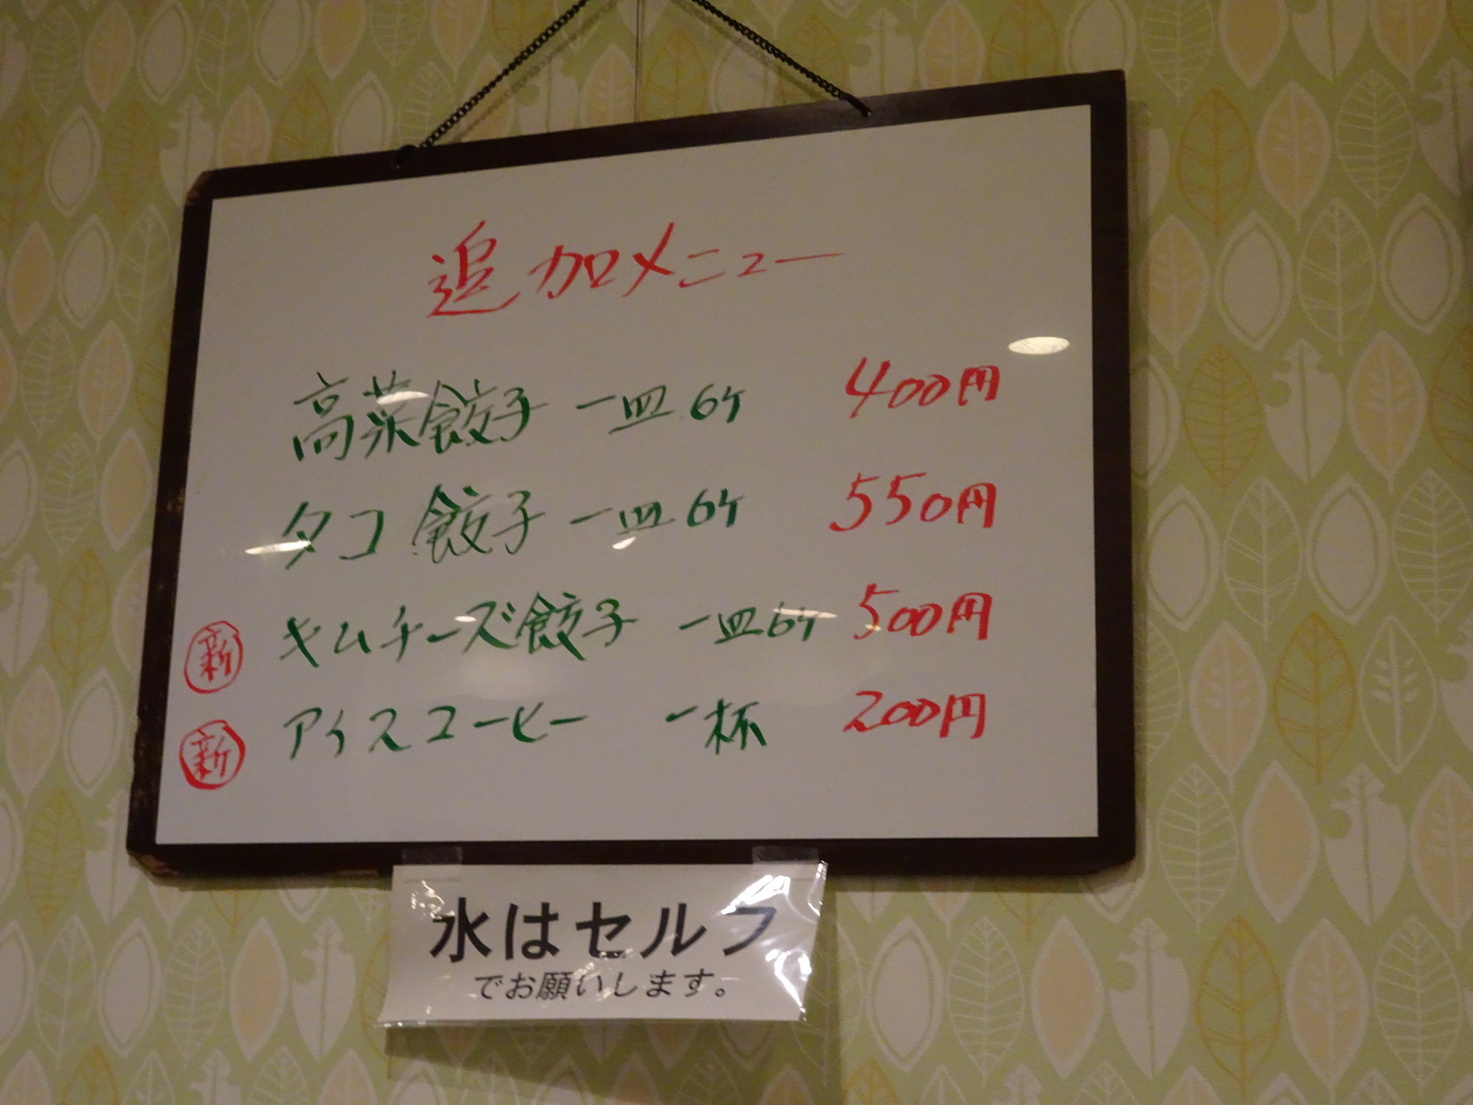 追加メニュー
高菜餃子 一皿 6ケ 400円
タコ餃子 一皿 6ケ 550円
新 キムチーズ餃子 一皿6ケ 500円
新 アイスコーヒー 一杯 200円
水はセルフ
でお願いします。